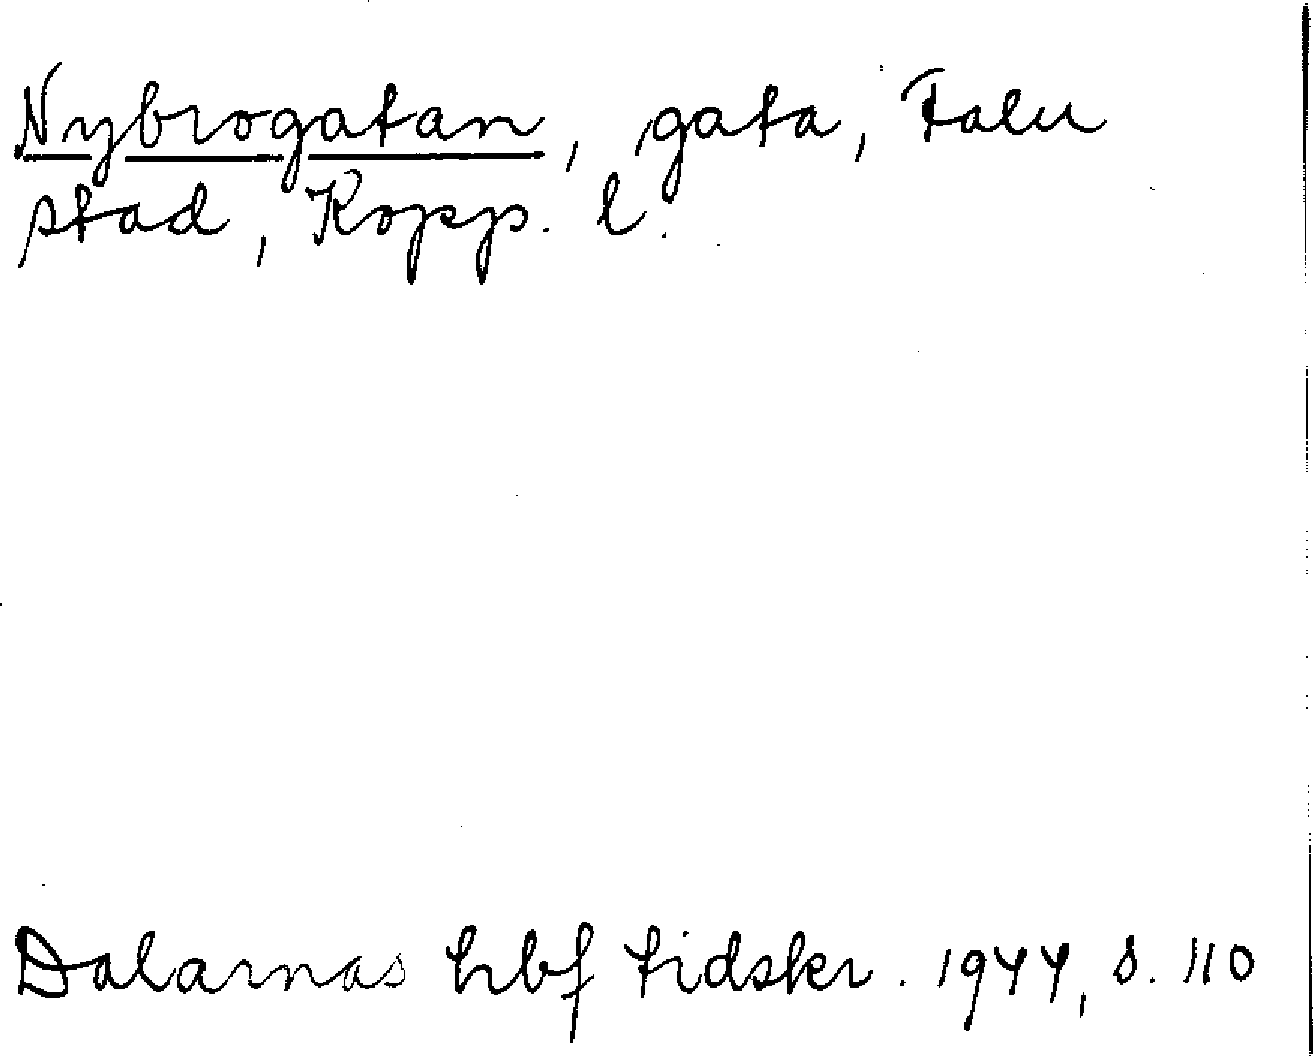 Nybrogatan, gata, Falu
stad, Kopp. l.
Dalarnas hbf tidskr. 1944, s. 110